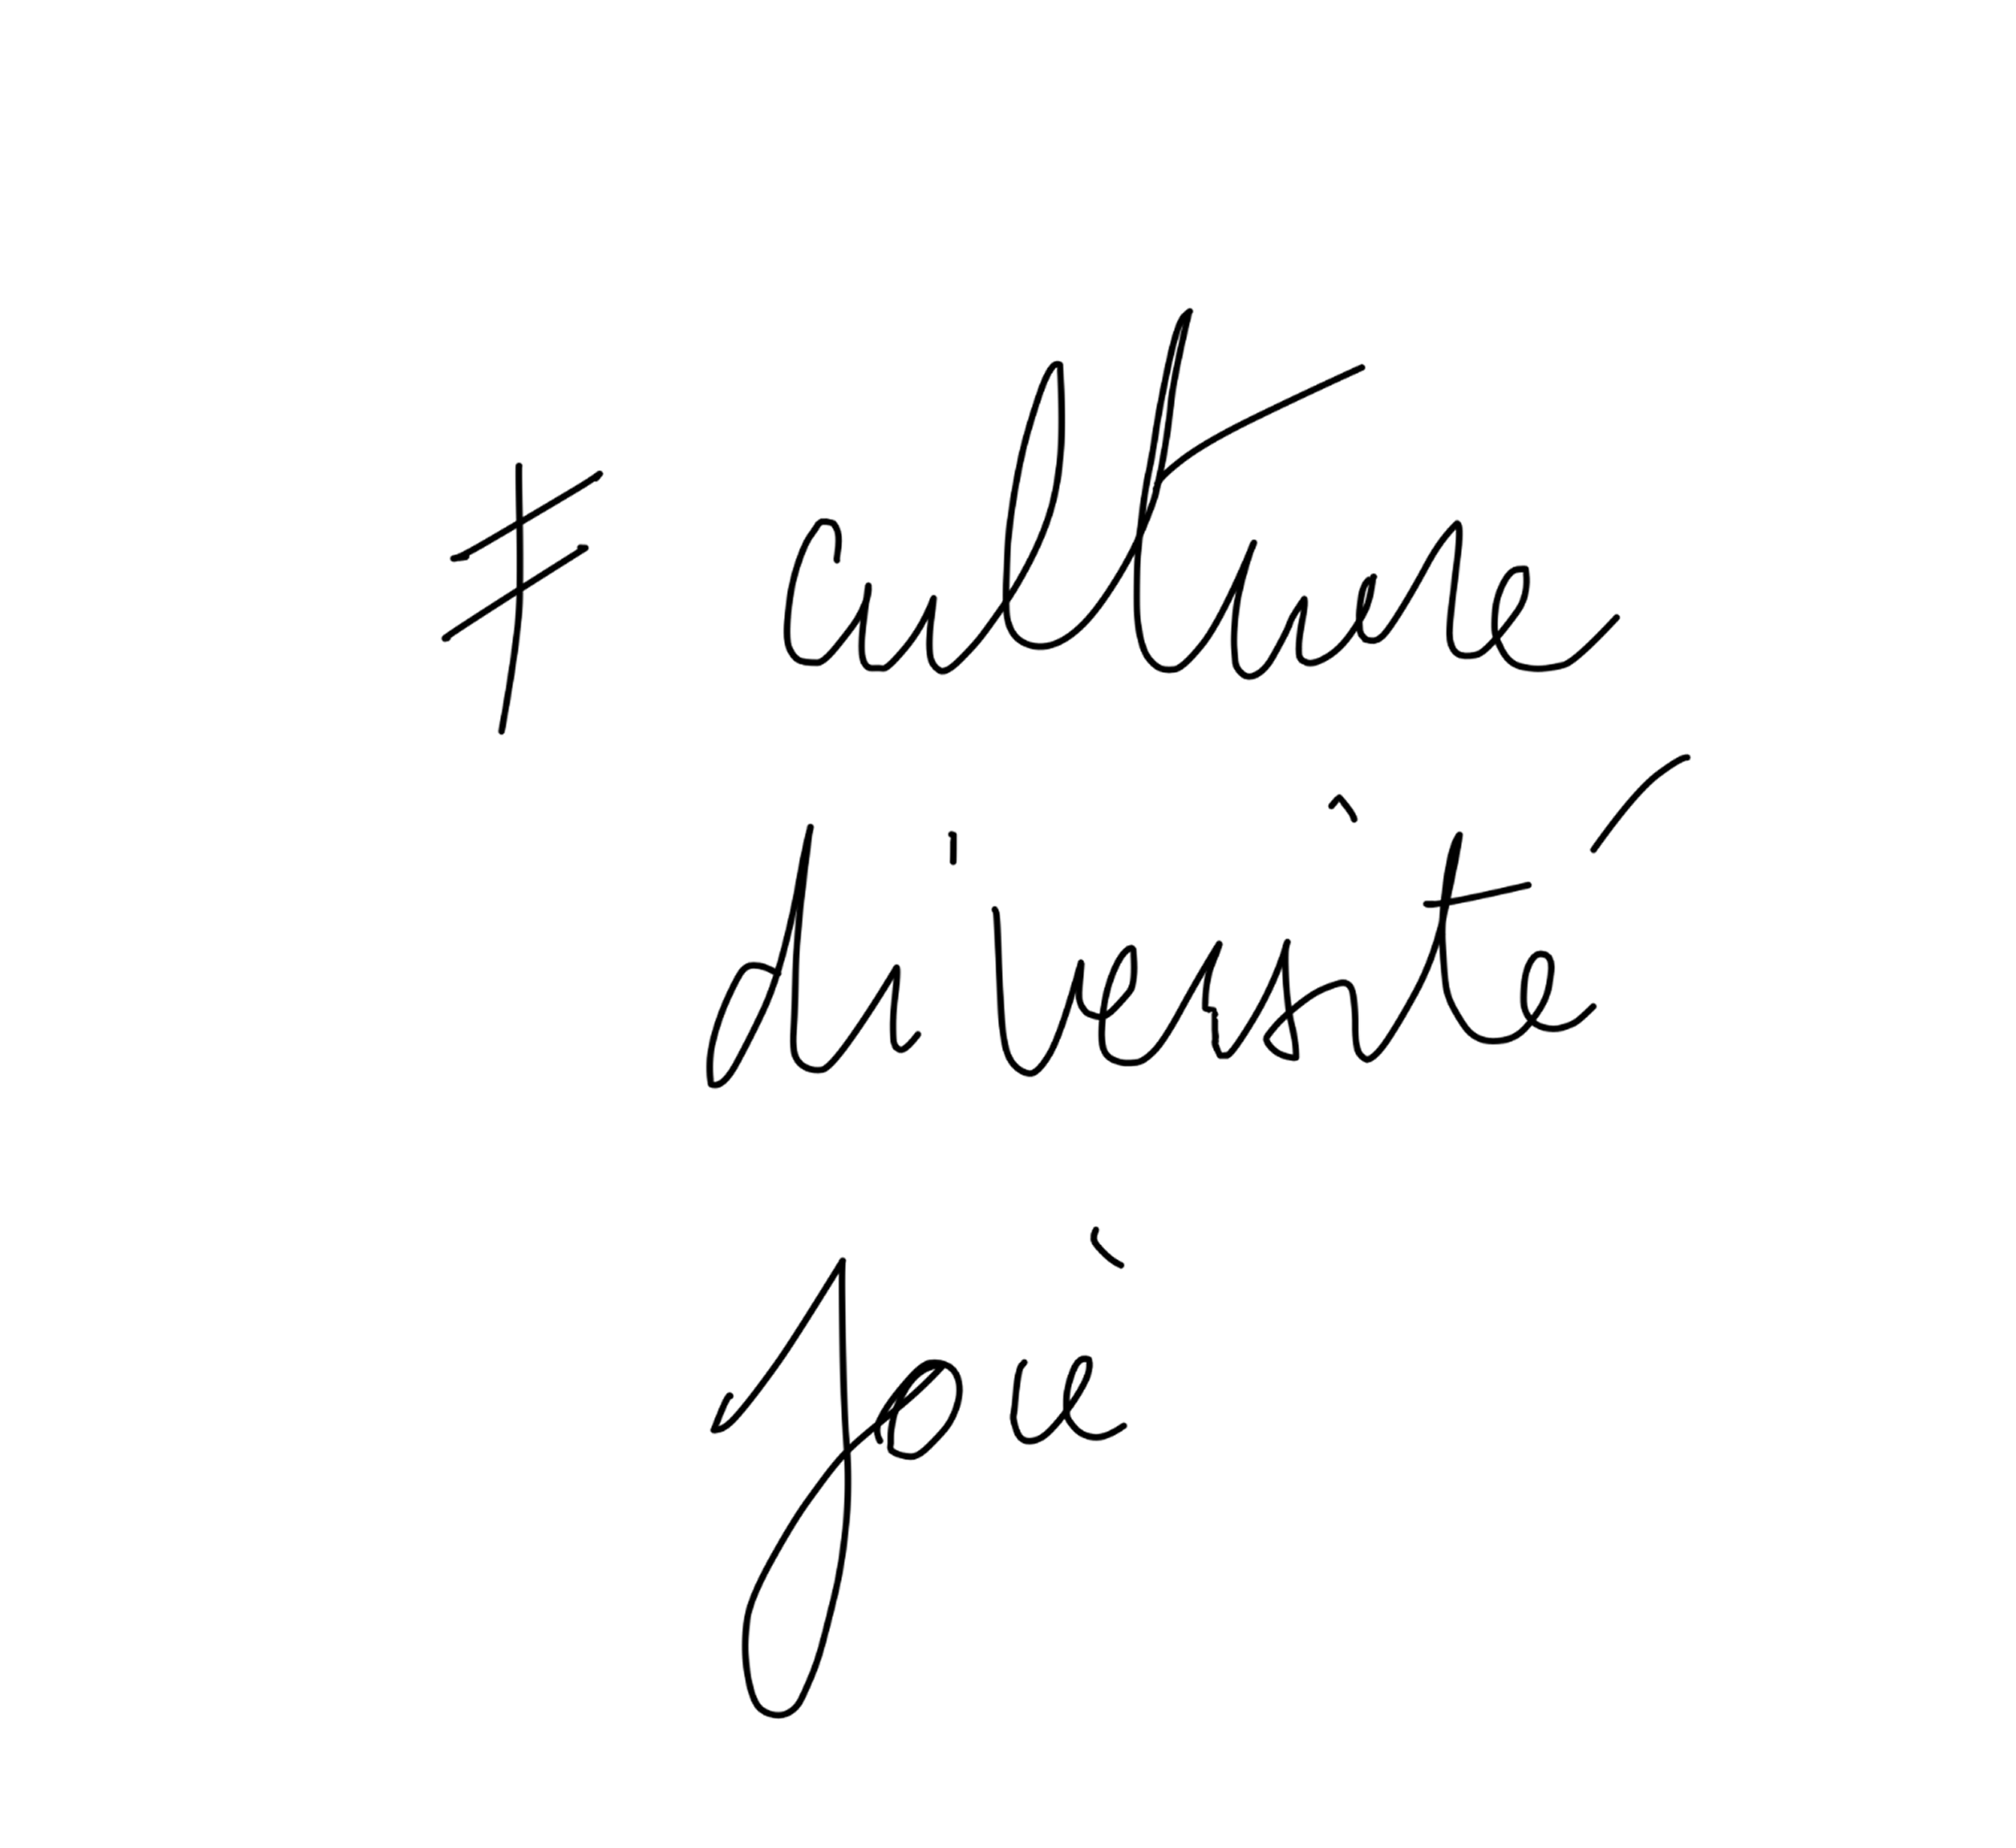 ≠ culture
diversité
Joie